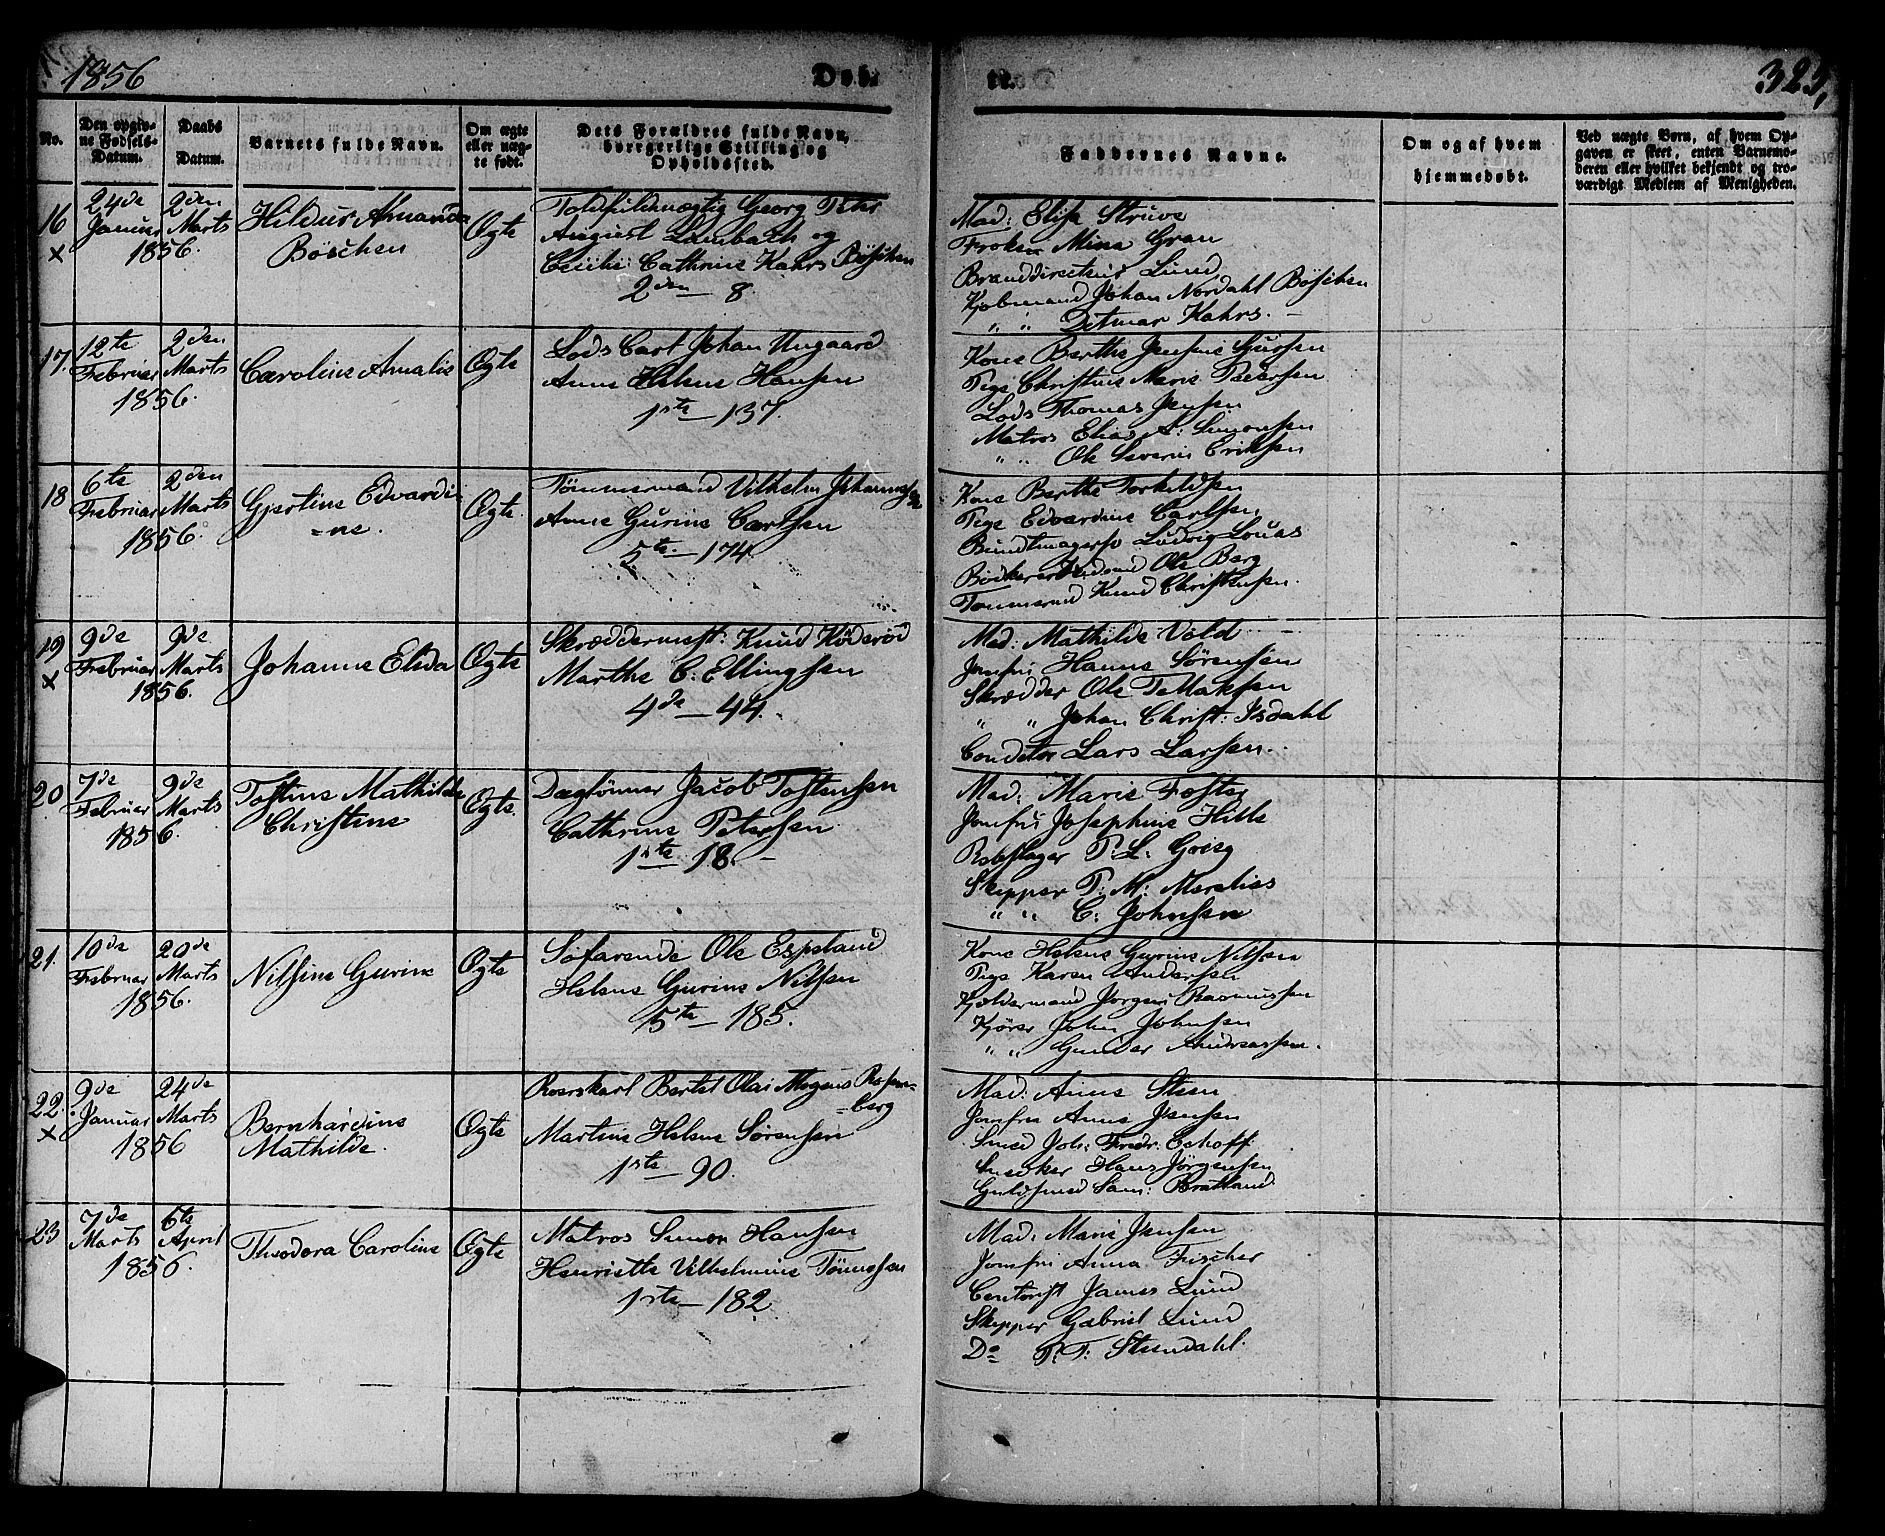 1856
Døb-
te.
323,
No.
Den opgiv-
ne Fødsels-
Datum.
Daabs
Datum.
Barnets fulde Navn.
Om ægte
eller uæg-
te født.
Dets Forældres fulde Navn,
borgerlige Stilling og
Opholdssted.
Faddernes Navne.
Om og af hvem
hjemmedøbt.
Ved uægte Børn, af hvem Op-
gaven er skeet, enten Barnemo-
deren eller hvilket bekjendt og tro-
værdigt Medlem af Menigheden.
16
x
24de
Januar
2den
Marts
1856.
Hildur Amanda
Böschen
Ægte
Toldfuldmægtig Georg Peter
August Lambach og
Cecilie Cathrine Kahrs Böschen
2den – 8.
Mad: Elise Struve
Frøken Mina Gran
Branddirecteur Lund
Kjøbmand Johan Nordahl Böschen
" " Ditmar Kahrs. –
17.
12te
Februar
2den
Marts
1856.
Caroline Amalie
Ægte
Lods Carl Johan Ungaard
Anne Helene Hansen
1ste – 137.
Kone Berthe Jensine
Pige Christine Marie Pedersen
Lods Thomas Jensen
Matros Elias A: Simonsen
" " Ole Severin Eriksen
18
6te
Februar
2den
Marts
1856.
Gjertine Edvardi
=ne.
Ægte.
Tømmermand Vilhelm Johannesen
Anne Gurine Carlsen
5te. – 174.
Kone Berthe Torkildsen
Pige Edvardine Carlsen,
Bundtmagersv Ludvig Louas
Bødkersvend Ole Berg
Tømmermd Knud Christensen.
19
x
9de
Februar
9de
Marts
1856.
Johanne Elida
Ægte
Skræddermest: Knud Köderöd
Marthe C: Ellingsen
4de – 44.
Mad: Mathilde Vold
Jomfru Hanne Sørensen
Skrædder Ole Tellaksen
" " Johan Christ: Isdahl
Conditor Lars Larsen.
20
7de
Februar
9de
Marts
1856.
Tostine Mathilde
Christine
Ægte.
Daglønner Jacob Tostensen
Cathrine Petersen
1ste 18. –
Mad: Marie Foster
Jomfru Josephine Hille
Rebslager P: L: Grieg
Skipper P: M: Marelius
" " C: Johnsen
21.
10de
Februar
20de
Marts
1856.
Nilsine Gurine
Ægte
Søfarende Ole Espeland
Helene Gurine Nilsen
5te – 185.
Kone Helene Gurine Nilsen
Pige Karen Andersen
Kjeldermand Jørgen Rasmussen
Kjører John Johnsen
" " Gunder Andreassen.
22.
x
9de
Januar
24de
Marts
1856
Bernhardine
Mathilde.
Ægte
Roerskarl Bertel Olai Mogens Rosen=
=berg
Martine Helene Sørensen
1ste – 90.
Mad: Anne Steen
Jomfru Anne Jensen
Smed Joh: Fredr: Echoff
Snedker Hans Jörgensen
Guldsmed Sam: Bratland.
23
7de
Marts
6te
April
1856.
Theodora Caroline
Ægte
Matros Simon Hansen
Henriette Vilhelmine Tönnesen
1ste – 182
Mad: Marie Jensen
Jomfru Anna Fischer
Contorist James Lund
Skipper Gabriel Lund
Do P: T: Steendahl.